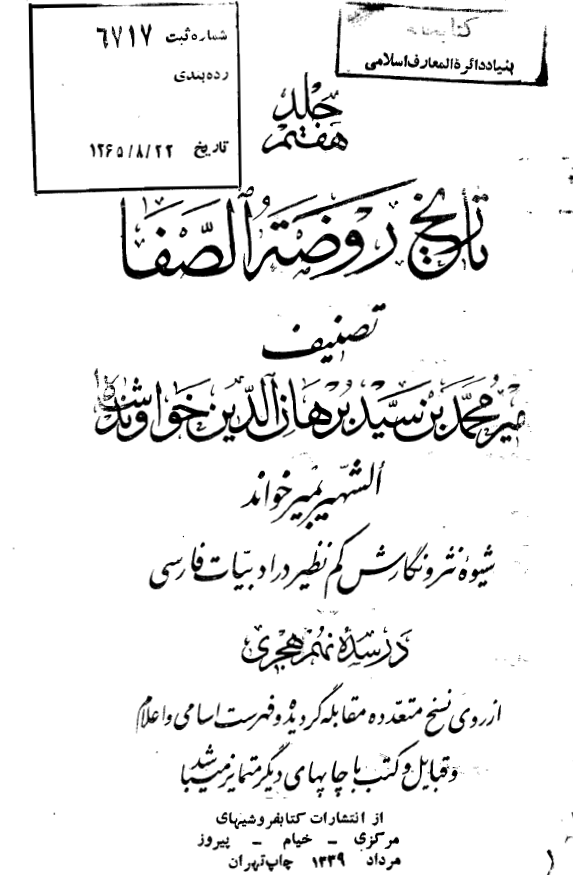 شماره ثبت ۶۷۱۷
رده‌بندی
تاریخ ۱۳۶۵/۸/۲۲
بنیاد دائرةالمعارف اسلامی
جلد
هفتم
تاریخ روضة الصّفا
تصنیف
میر محمّد بن سیّد برهان الدّین خواوند شاه
الشّهیر بمیرخواند
شیوهٔ نثر و نگارش کم نظیر در ادبیّات فارسی
در سدهٔ نهم هجری
از روی نسخ متعدّده مقابله گردیده و فهرست اسامی و اعلام
و قبایل و کتب با چاپهای دیگر متمایز میباشد
از انتشارات کتابفروشیهای
مرکزی - خیام - پیروز
مرداد ۱۳۳۹ چاپ تهران